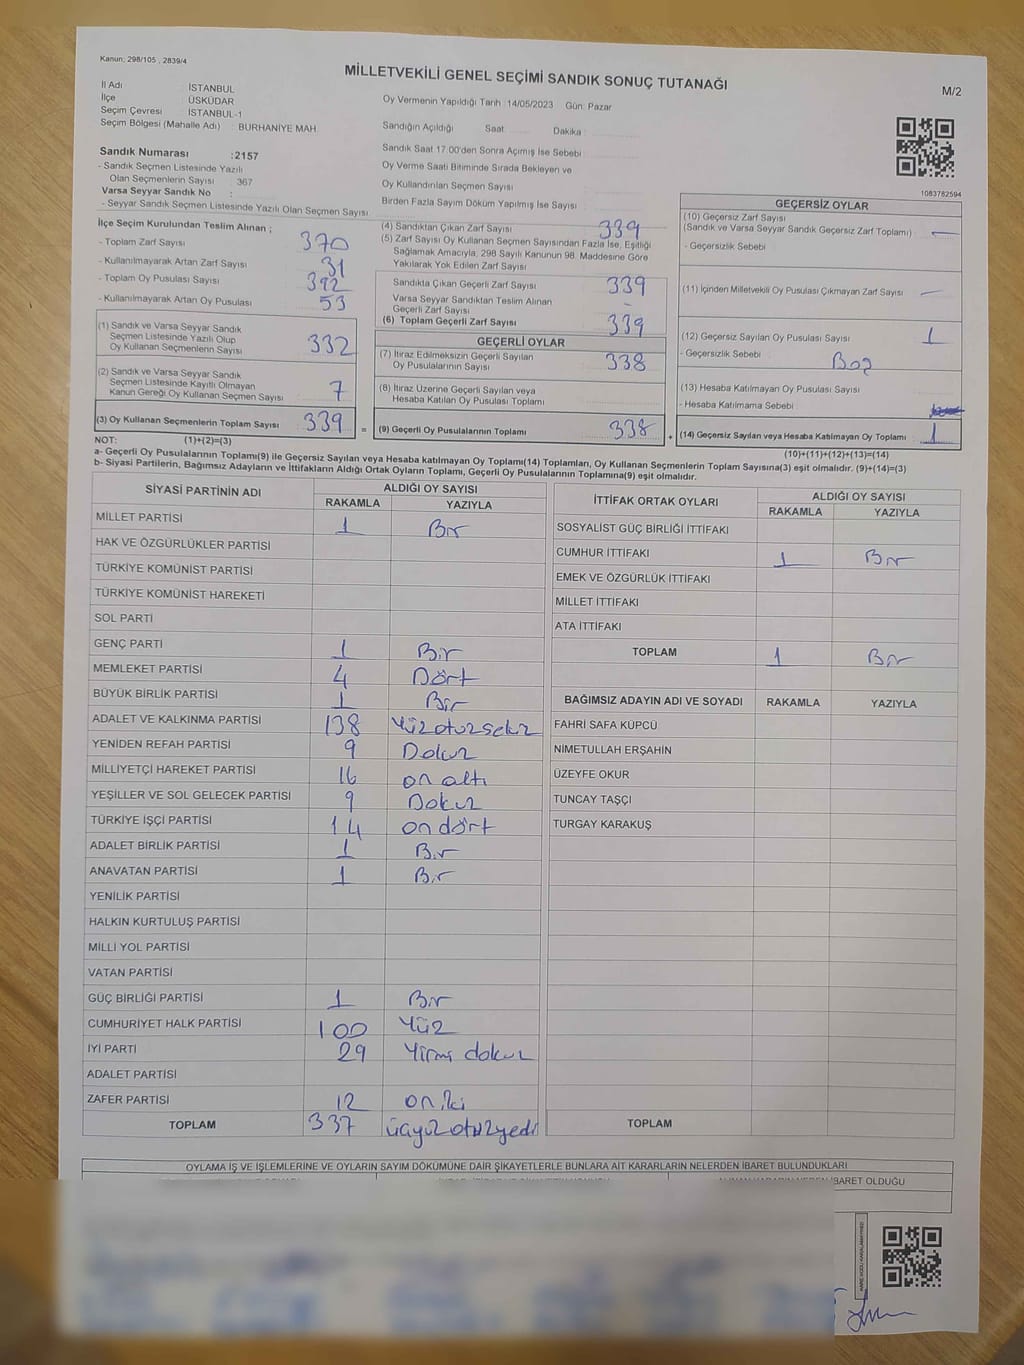 Kanun; 298/105 , 2839/4
MİLLETVEKİLİ GENEL SEÇİMİ SANDIK SONUÇ TUTANAĞI
M/2
İl Adı : İSTANBUL
İlçe ÜSKÜDAR
Seçim Çevresi İSTANBUL-1
Seçim Bölgesi (Mahalle Adı) : BURHANİYE MAH.
Sandık Numarası :2157
- Sandık Seçmen Listesinde Yazılı
Olan Seçmenlerin Sayısı : 367
Varsa Seyyar Sandık No :
- Seyyar Sandık Seçmen Listesinde Yazılı Olan Seçmen Sayısı
Oy Vermenin Yapıldığı Tarih :14/05/2023 Gün: Pazar
Sandığın Açıldığı Saat Dakika :
Sandık Saat 17.00'den Sonra Açımış İse Sebebi
Oy Verme Saati Bitiminde Sırada Bekleyen ve
Oy Kullandırılan Seçmen Sayısı
Birden Fazla Sayım Döküm Yapılmış İse Sayısı
1083762594
İlçe Seçim Kurulundan Teslim Alınan ;
- Toplam Zarf Sayısı 370
- Kullanılmayarak Artan Zarf Sayısı 31
- Toplam Oy Pusulası Sayısı 392
- Kullanılmayarak Artan Oy Pusulası 53
(1) Sandık ve Varsa Seyyar Sandık
Seçmen Listesinde Yazılı Olup
Oy Kullanan Seçmenlerin Sayısı 332
(2) Sandık ve Varsa Seyyar Sandık
Seçmen Listesinde Kayıtlı Olmayan
Kanun Gereği Oy Kullanan Seçmen Sayısı 7
(3) Oy Kullanan Seçmenlerin Toplam Sayısı 339 =
(4) Sandıktan Çıkan Zarf Sayısı 339
(5) Zarf Sayısı Oy Kullanan Seçmen Sayısından Fazla İse, Eşitliği
Sağlamak Amacıyla, 298 Sayılı Kanunun 98. Maddesine Göre
Yakılarak Yok Edilen Zarf Sayısı
Sandıkta Çıkan Geçerli Zarf Sayısı 339
Varsa Seyyar Sandıktan Teslim Alınan
Geçerli Zarf Sayısı -
(6) Toplam Geçerli Zarf Sayısı 339
GEÇERLİ OYLAR
(7) İtiraz Edilmeksizin Geçerli Sayılan
Oy Pusulalarının Sayısı 338
(8) İtiraz Üzerine Geçerli Sayılan veya
Hesaba Katılan Oy Pusulası Toplamı
(9) Geçerli Oy Pusulalarının Toplamı 338 +
GEÇERSİZ OYLAR
(10) Geçersiz Zarf Sayısı
(Sandık ve Varsa Seyyar Sandık Geçersiz Zarf Toplamı) : —
- Geçersizlik Sebebi
(11) İçinden Milletvekili Oy Pusulası Çıkmayan Zarf Sayısı —
(12) Geçersiz Sayılan Oy Pusulası Sayısı 1
- Geçersizlik Sebebi Boş
(13) Hesaba Katılmayan Oy Pusulası Sayısı
- Hesaba Katılmama Sebebi
(14) Geçersiz Sayılan veya Hesaba Katılmayan Oy Toplamı 1
NOT: (1)+(2)=(3) (10)+(11)+(12)+(13)=(14)
a- Geçerli Oy Pusulalarının Toplamı(9) ile Geçersiz Sayılan veya Hesaba katılmayan Oy Toplamı(14) Toplamları, Oy Kullanan Seçmenlerin Toplam Sayısına(3) eşit olmalıdır. (9)+(14)=(3)
b- Siyasi Partilerin, Bağımsız Adayların ve İttifakların Aldığı Ortak Oyların Toplamı, Geçerli Oy Pusulalarının Toplamına(9) eşit olmalıdır.
SİYASİ PARTİNİN ADI ALDIĞI OY SAYISI
RAKAMLA YAZIYLA
MİLLET PARTİSİ 1 Bir
HAK VE ÖZGÜRLÜKLER PARTİSİ
TÜRKİYE KOMÜNİST PARTİSİ
TÜRKİYE KOMÜNİST HAREKETİ
SOL PARTİ
GENÇ PARTİ 1 Bir
MEMLEKET PARTİSİ 4 Dört
BÜYÜK BİRLİK PARTİSİ 1 Bir
ADALET VE KALKINMA PARTİSİ 138 Yüzotuzsekiz
YENİDEN REFAH PARTİSİ 9 Dokuz
MİLLİYETÇİ HAREKET PARTİSİ 16 on altı
YEŞİLLER VE SOL GELECEK PARTİSİ 9 Dokuz
TÜRKİYE İŞÇİ PARTİSİ 14 on dört
ADALET BİRLİK PARTİSİ 1 Bir
ANAVATAN PARTİSİ 1 Bir
YENİLİK PARTİSİ
HALKIN KURTULUŞ PARTİSİ
MİLLİ YOL PARTİSİ
VATAN PARTİSİ
GÜÇ BİRLİĞİ PARTİSİ 1 Bir
CUMHURİYET HALK PARTİSİ 100 Yüz
İYİ PARTİ 29 Yirmi dokuz
ADALET PARTİSİ
ZAFER PARTİSİ 12 on iki
TOPLAM 337 üçyüzotuzyedi
İTTİFAK ORTAK OYLARI ALDIĞI OY SAYISI
RAKAMLA YAZIYLA
SOSYALİST GÜÇ BİRLİĞİ İTTİFAKI
CUMHUR İTTİFAKI 1 Bir
EMEK VE ÖZGÜRLÜK İTTİFAKI
MİLLET İTTİFAKI
ATA İTTİFAKI
TOPLAM 1 Bir
BAĞIMSIZ ADAYIN ADI VE SOYADI RAKAMLA YAZIYLA
FAHRİ SAFA KÜPCÜ
NİMETULLAH ERŞAHİN
ÜZEYFE OKUR
TUNCAY TAŞÇI
TURGAY KARAKUŞ
TOPLAM
OYLAMA İŞ VE İŞLEMLERİNE VE OYLARIN SAYIM DÖKÜMÜNE DAİR ŞİKAYETLERLE BUNLARA AİT KARARLARIN NELERDEN İBARET BULUNDUKLARI
İBARET OLDUĞU